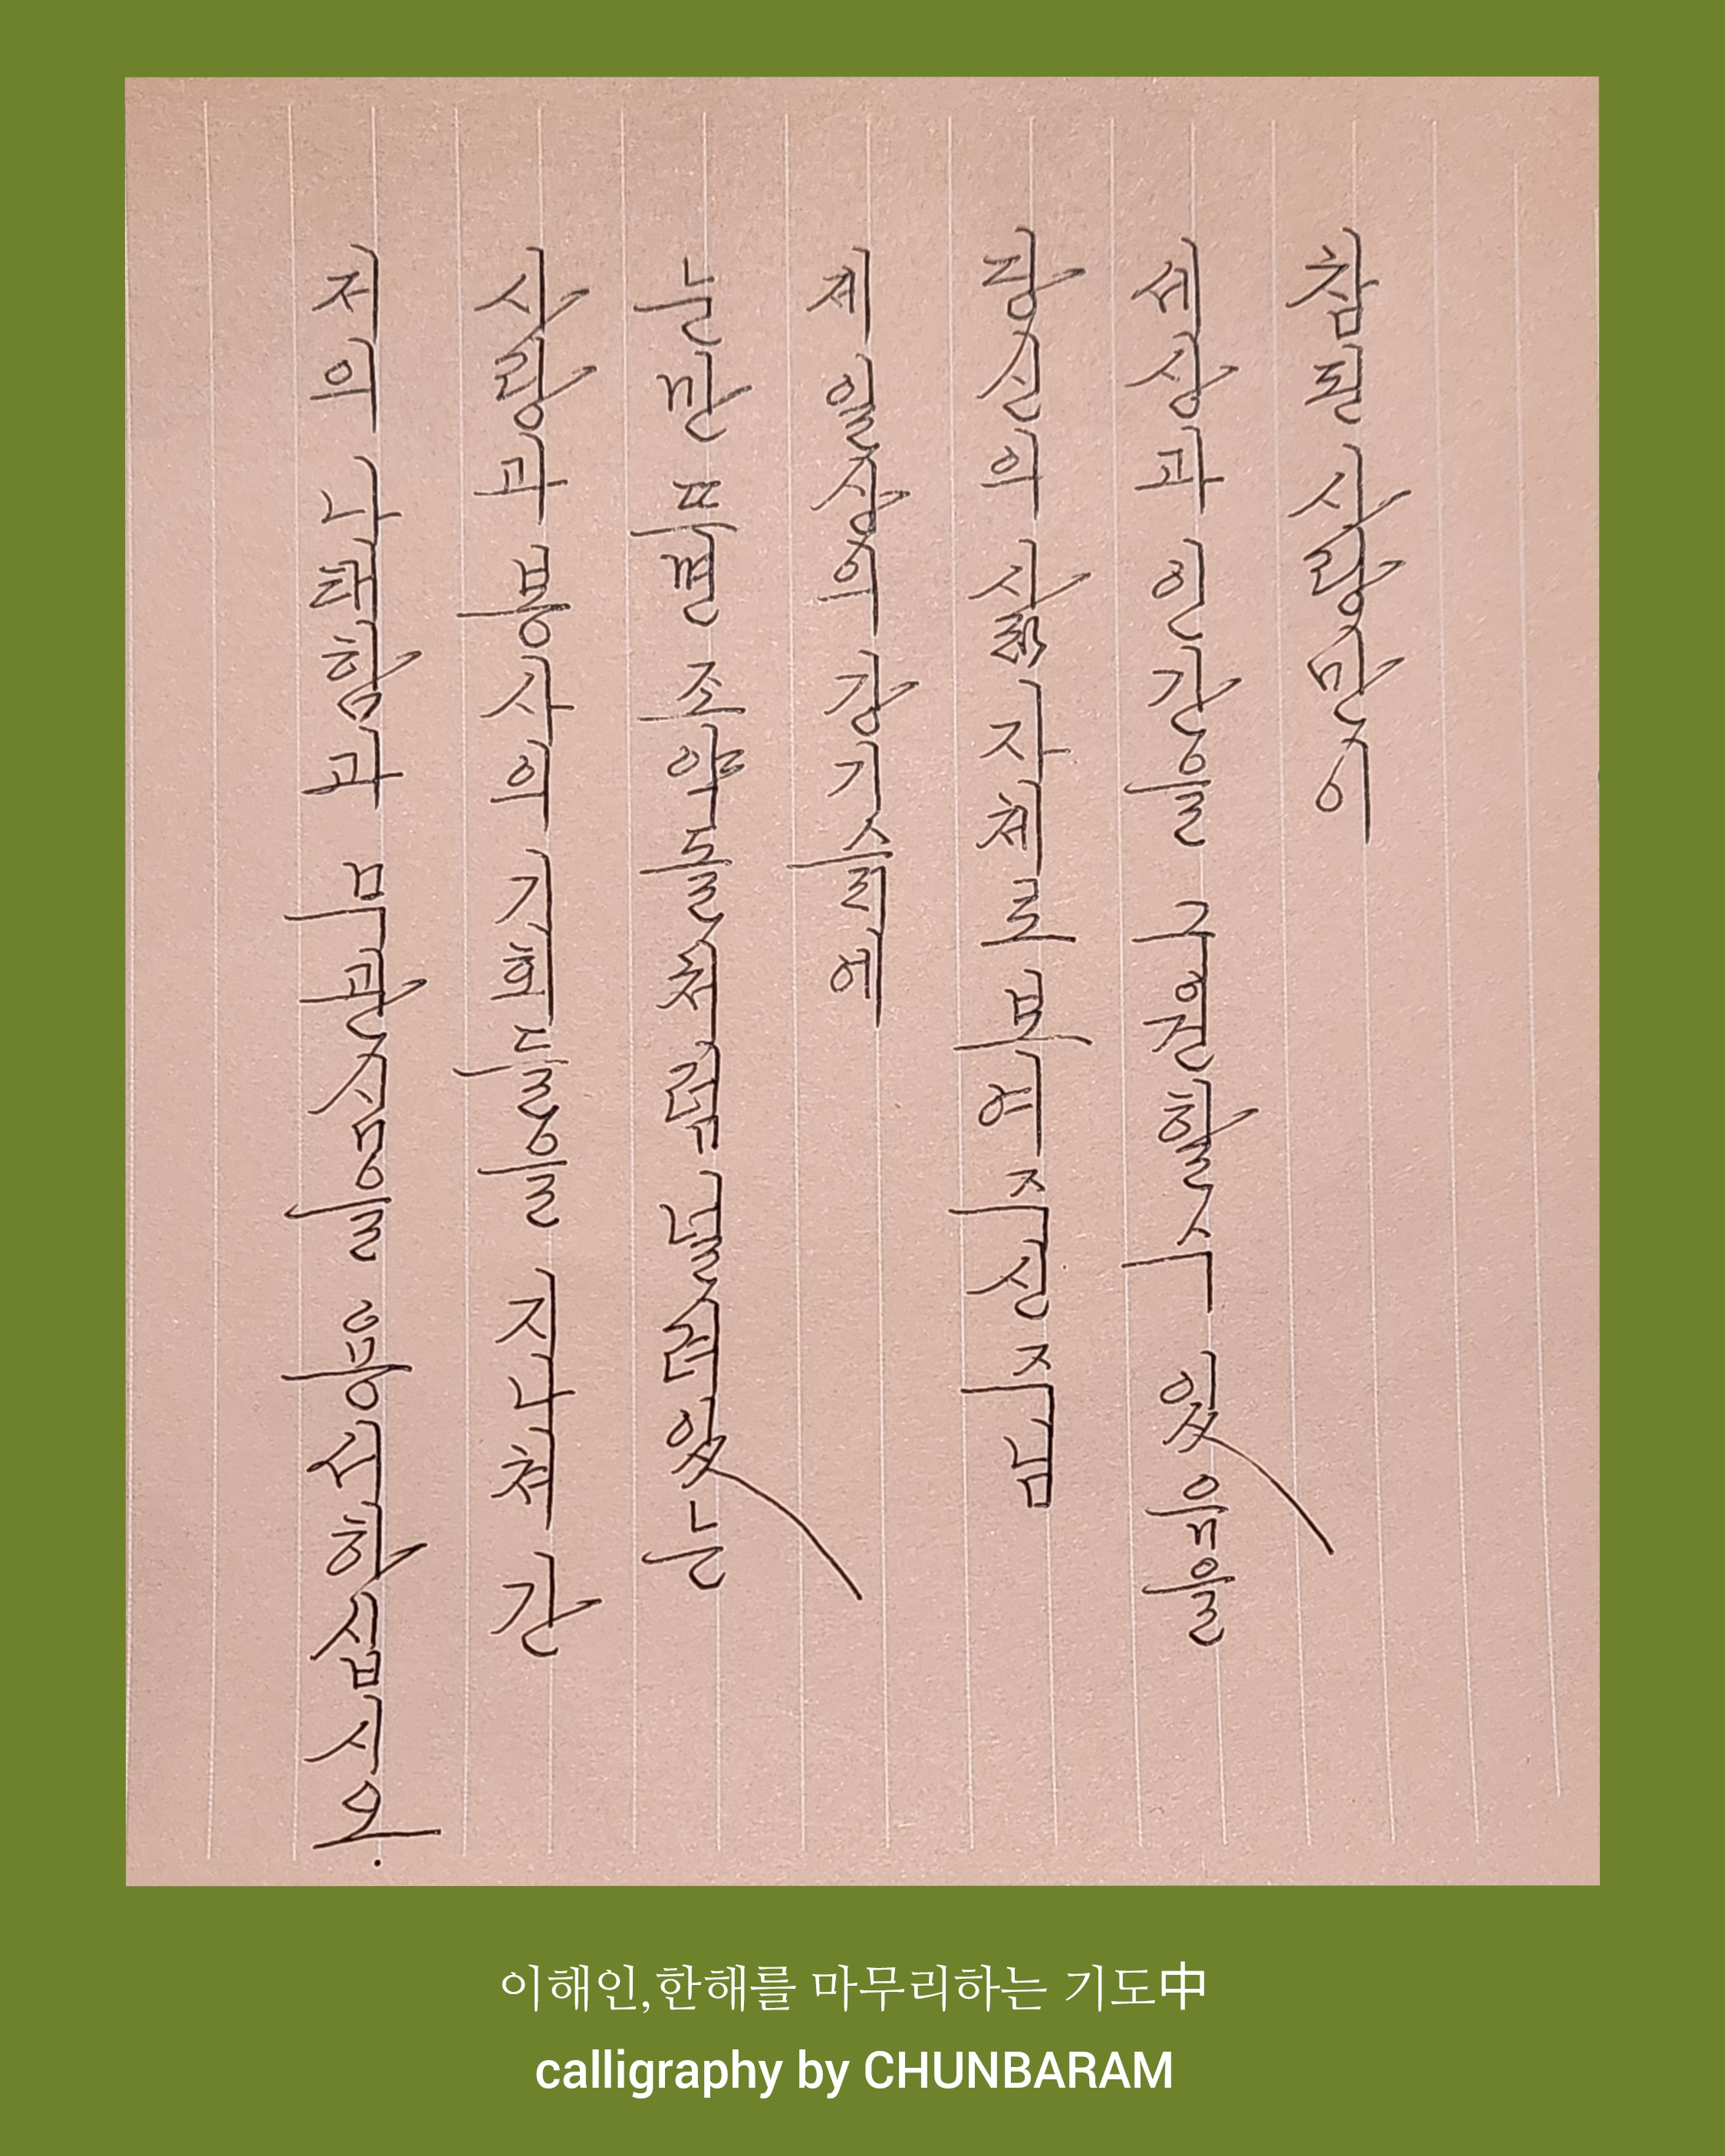 참된 사랑만이
세상과 인간을 구원할수 있음을
당신의 삶 자체로 보여주신 주님
제 일상의 강기슭에
눈만 뜨면 조약돌처럼 널려있는
사랑과 봉사의 기회들을 지나쳐 간
저의 나태함과 무관심을 용서하십시오.
이해인,한해를 마무리하는 기도中
calligraphy by CHUNBARAM